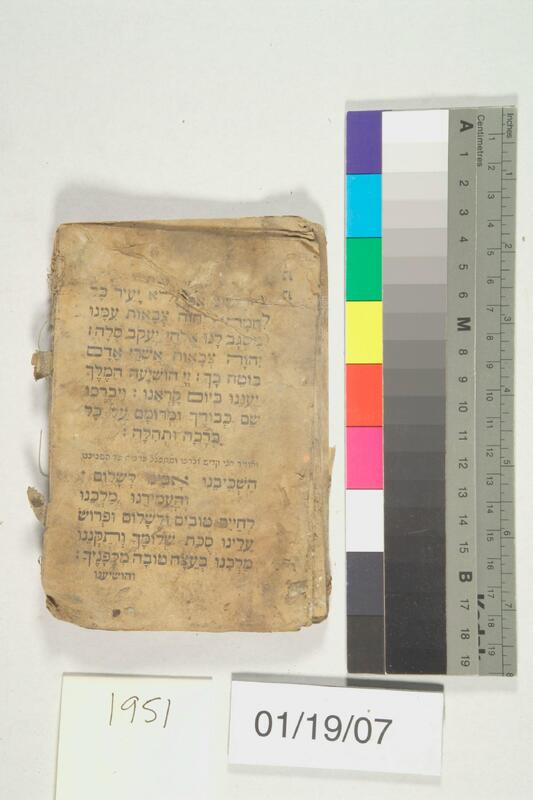 יָעִיר כָּל
צְבָאוֹת עִמָּנוּ
מִשְׂגָּב לָנוּ אֱלֹהֵי יַעֲקֹב סֶלָה׃
יְהוָה צְבָאוֹת אַשְׁרֵי אָדָם
בּוֹטֵחַ בָּךְ׃ יְיָ הוֹשִׁיעָה הַמֶּלֶךְ
יַעֲנֵנוּ בְיוֹם קָרְאֵנוּ׃ וִיבָרְכוּ
שֵׁם כְּבוֹדֶךָ וּמְרוֹמָם עַל כָּל
בְּרָכָה וּתְהִלָּה׃
הַשְׁכִּיבֵנוּ אָבִינוּ לְשָׁלוֹם
וְהַעֲמִידֵנוּ מַלְכֵּנוּ
לְחַיִּים טוֹבִים וּלְשָׁלוֹם וּפְרוֹשׂ
עָלֵינוּ סֻכַּת שְׁלוֹמֶךָ וְתַקְּנֵנוּ
מַלְכֵּנוּ בְּעֵצָה טוֹבָה מִלְּפָנֶיךָ׃
והושיענו
Inches
Centimetres
A 1 2 3 4 5 6 M 8 9 10 11 12 13 14 15 B 17 18 19
Kodak
1951
01/19/07